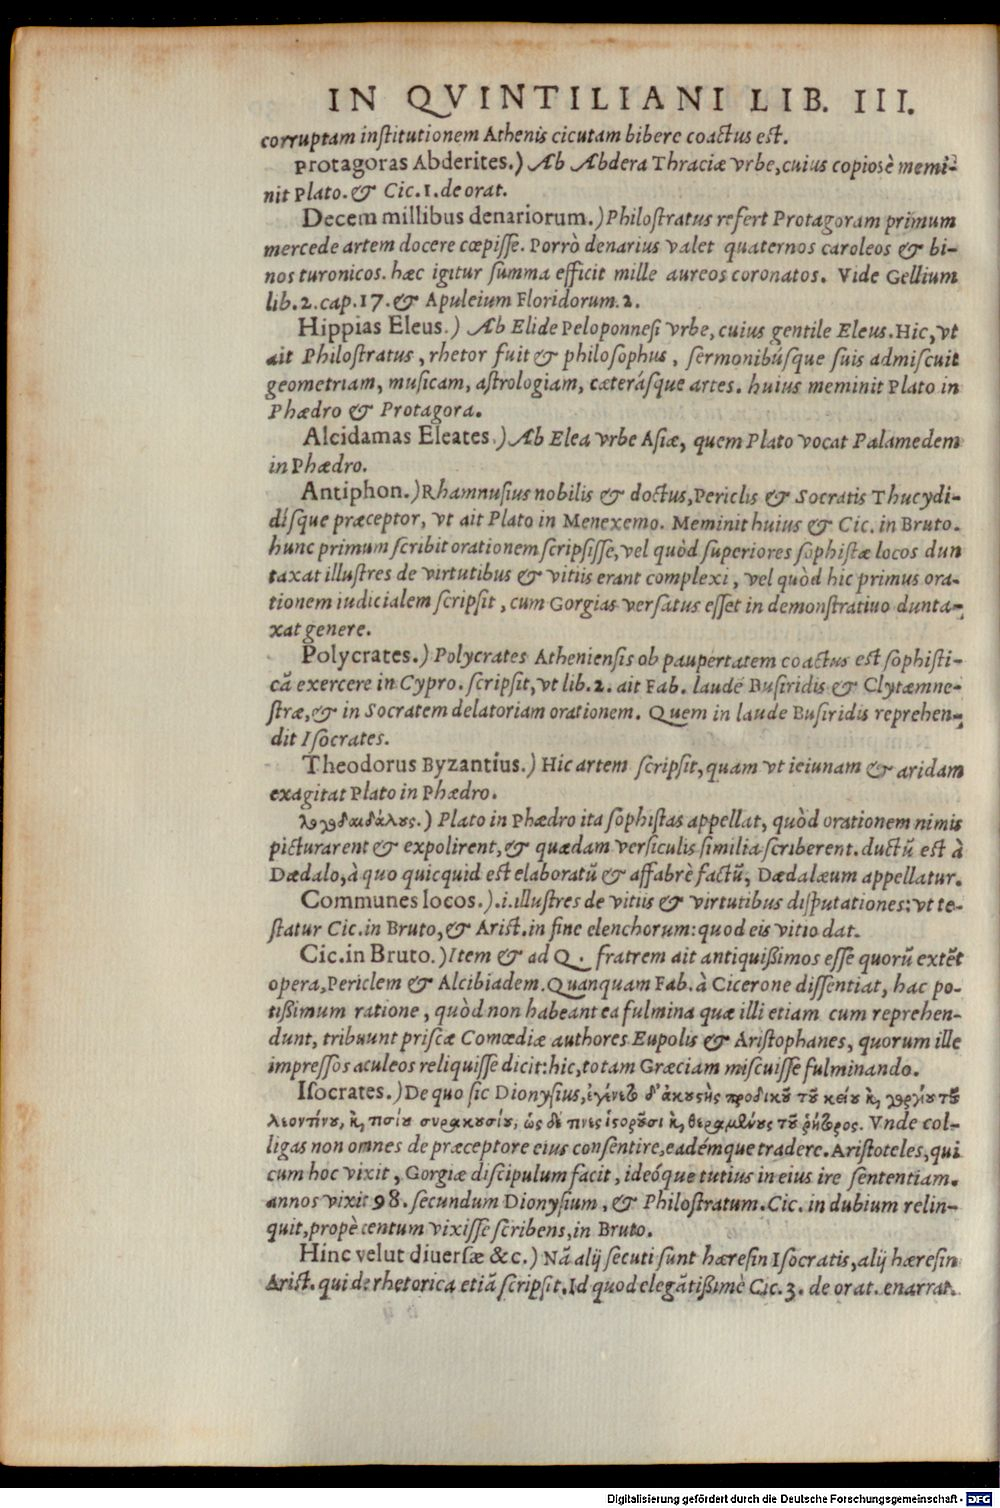 IN QVINTILIANI LIB. III.
corruptam inſtitutionem Athenis cicutam bibere coactus eſt.
Protagoras Abderites.) Ab Abdera Thraciæ vrbe, cuius copiosè memi-
nit Plato. & Cic. 1. de orat.
Decem millibus denariorum.) Philoſtratus refert Protagoram primum
mercede artem docere cœpiſſe. Porrò denarius valet quaternos caroleos & bi-
nos turonicos. hæc igitur ſumma efficit mille aureos coronatos. Vide Gellium
lib. 2. cap. 17. & Apuleium Floridorum. 2.
Hippias Eleus.) Ab Elide Peloponneſi vrbe, cuius gentile Eleus. Hic, vt
ait Philoſtratus, rhetor fuit & philoſophus, ſermonibúſque ſuis admiſcuit
geometriam, muſicam, aſtrologiam, cæteráſque artes. huius meminit Plato in
Phædro & Protagora.
Alcidamas Eleates.) Ab Elea vrbe Aſiæ, quem Plato vocat Palamedem
in Phædro.
Antiphon.) Rhamnuſius nobilis & doctus, Periclis & Socratis Thucydi-
díſque præceptor, vt ait Plato in Menexemo. Meminit huius & Cic. in Bruto.
hunc primum ſcribit orationem ſcripſiſſe, vel quòd ſuperiores ſophiſtæ locos dun
taxat illuſtres de virtutibus & vitiis erant complexi, vel quòd hic primus ora-
tionem iudicialem ſcripſit, cum Gorgias verſatus eſſet in demonſtratiuo dunta-
xat genere.
Polycrates.) Polycrates Athenienſis ob paupertatem coactus est ſophiſti-
cā exercere in Cypro. ſcripſit, vt lib. 2. ait Fab. laudē Buſiridis & Clytæmne-
ſtræ, & in Socratem delatoriam orationem. Quem in laude Buſiridis reprehen-
dit Iſocrates.
Theodorus Byzantius.) Hic artem ſcripſit, quam vt ieiunam & aridam
exagitat Plato in Phædro.
λογοδαιδάλους.) Plato in Phædro ita ſophiſtas appellat, quòd orationem nimis
picturarent & expolirent, & quædam verſiculis ſimilia ſcriberent. ductū est à
Dædalo, à quo quicquid est elaboratū & affabrè factū, Dædalæum appellatur.
Communes locos.) .i. illuſtres de vitiis & virtutibus diſputationes: vt te-
ſtatur Cic. in Bruto, & Ariſt. in fine elenchorum: quod eis vitio dat.
Cic. in Bruto.) Item & ad Q. fratrem ait antiquißimos eſſe quorū extēt
opera, Periclem & Alcibiadem. Quanquam Fab. à Cicerone diſſentiat, hac po-
tißimum ratione, quòd non habeant ea fulmina quæ illi etiam cum reprehen-
dunt, tribuunt priſcæ Comœdiæ authores Eupolis & Ariſtophanes, quorum ille
impreſſos aculeos reliquiſſe dicit: hic, totam Græciam miſcuiſſe fulminando.
Iſocrates.) De quo ſic Dionyſius, ἐγένετο δ' ἀκουστὴς προδίκου τοῦ κείου καὶ γοργίου τοῦ
λεοντίνου, καὶ τισίου συρακουσίου, ὡς δέ τινες ἱστοροῦσι καὶ θηραμένους τοῦ ῥήτορος. Vnde col-
ligas non omnes de præceptore eius conſentire, eadémque tradere. Ariſtoteles, qui
cum hoc vixit, Gorgiæ diſcipulum facit, ideóque tutius in eius ire ſententiam.
annos vixit 98. ſecundum Dionyſium, & Philoſtratum. Cic. in dubium relin-
quit, propè centum vixiſſe ſcribens, in Bruto.
Hinc velut diuerſæ &c.) Nā alij ſecuti ſunt hæreſin Iſocratis, alij hæreſin
Ariſt. qui de rhetorica etiā ſcripſit. Id quod elegātißimè Cic. 3. de orat. enarrat.
Digitalisierung gefördert durch die Deutsche Forschungsgemeinschaft - DFG